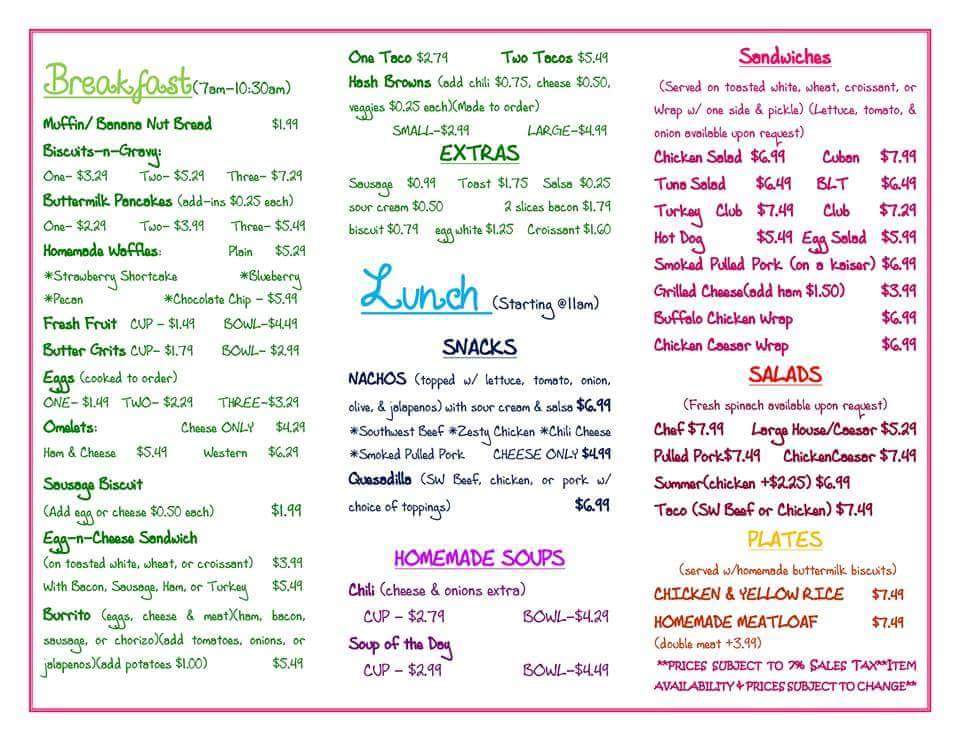 Breakfast (7am-10:30am)
Muffin/ Banana Nut Bread $1.99
Biscuits-n-Gravy:
One- $3.29 Two- $5.29 Three- $7.29
Buttermilk Pancakes (add-ins $0.25 each)
One- $2.29 Two- $3.99 Three- $5.49
Homemade Waffles: Plain $5.29
*Strawberry Shortcake *Blueberry
*Pecan *Chocolate Chip - $5.99
Fresh Fruit CUP - $1.49 BOWL-$4.49
Butter Grits CUP- $1.79 BOWL- $2.99
Eggs (cooked to order)
ONE- $1.49 TWO- $2.29 THREE-$3.29
Omelets: Cheese ONLY $4.29
Ham & Cheese $5.49 Western $6.29
Sausage Biscuit
(Add egg or cheese $0.50 each) $1.99
Egg-n-Cheese Sandwich
(on toasted white, wheat, or croissant) $3.99
With Bacon, Sausage, Ham, or Turkey $5.49
Burrito (eggs, cheese & meat)(ham, bacon,
sausage, or chorizo)(add tomatoes, onions, or
jalapenos)(add potatoes $1.00) $5.49
One Taco $2.79 Two Tacos $5.49
Hash Browns (add chili $0.75, cheese $0.50,
veggies $0.25 each)(Made to order)
SMALL-$2.99 LARGE-$4.99
EXTRAS
Sausage $0.99 Toast $1.75 Salsa $0.25
sour cream $0.50 2 slices bacon $1.79
biscuit $0.79 egg white $1.25 Croissant $1.60
Lunch (Starting @11am)
SNACKS
NACHOS (topped w/ lettuce, tomato, onion,
olive, & jalapenos) with sour cream & salsa $6.99
*Southwest Beef *Zesty Chicken *Chili Cheese
*Smoked Pulled Pork CHEESE ONLY $4.99
Quesadilla (SW Beef, chicken, or pork w/
choice of toppings) $6.99
HOMEMADE SOUPS
Chili (cheese & onions extra)
CUP - $2.79 BOWL-$4.29
Soup of the Day
CUP - $2.99 BOWL-$4.49
Sandwiches
(Served on toasted white, wheat, croissant, or
Wrap w/ one side & pickle) (Lettuce, tomato, &
onion available upon request)
Chicken Salad $6.99 Cuban $7.99
Tuna Salad $6.49 BLT $6.49
Turkey Club $7.49 Club $7.29
Hot Dog $5.49 Egg Salad $5.99
Smoked Pulled Pork (on a kaiser) $6.99
Grilled Cheese(add ham $1.50) $3.99
Buffalo Chicken Wrap $6.99
Chicken Caesar Wrap $6.99
SALADS
(Fresh spinach available upon request)
Chef $7.99 Large House/Caesar $5.29
Pulled Pork$7.49 ChickenCaesar $7.49
Summer(chicken +$2.25) $6.99
Taco (SW Beef or Chicken) $7.49
PLATES
(served w/homemade buttermilk biscuits)
CHICKEN & YELLOW RICE $7.49
HOMEMADE MEATLOAF $7.49
(double meat +3.99)
**PRICES SUBJECT TO 7% SALES TAX**ITEM
AVAILABILITY & PRICES SUBJECT TO CHANGE**